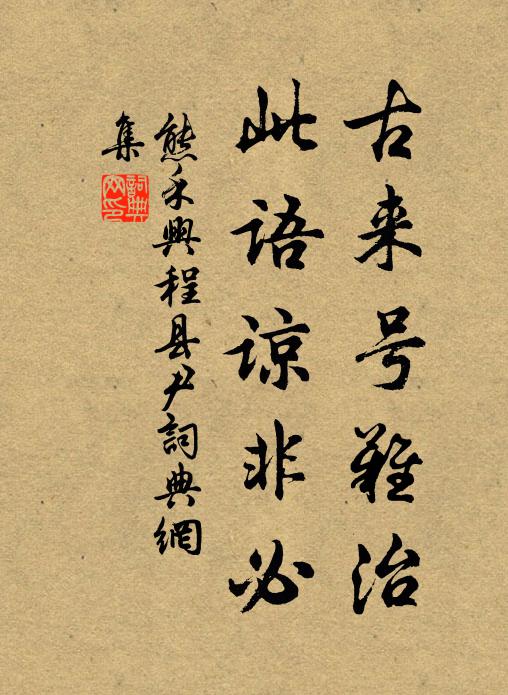 古来号難治
此語諒非必
熊禾興程县尹詞典網
集
詞典網印